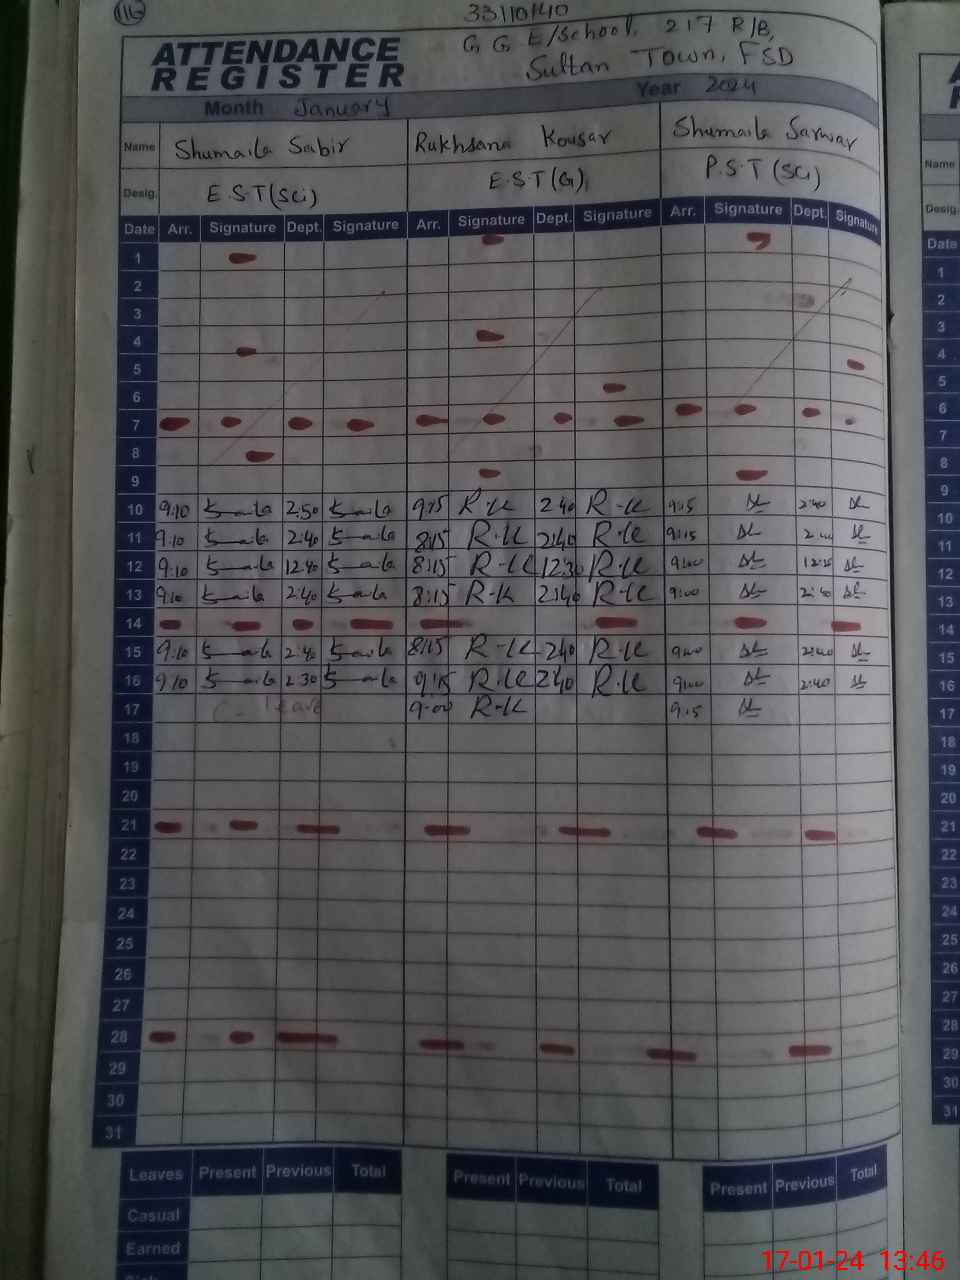 116
33110140
ATTENDANCE G G E/School, 217 R/B,
REGISTER Sultan Town, FSD
Month January Year 2024
Name Shumaila Sabir Rukhsana Kousar Shumaila Sarwar
Desig. E.S.T(Sci) E.S.T(G), P.S.T(SCi)
Date Arr. Signature Dept. Signature Arr. Signature Dept. Signature Arr. Signature Dept. Signature
1
2
3
4
5
6
7
8
9
10 9:10 2:50 9:15 R-K 2:40 R-K 9:15 2:40
11 9:10 2:40 8:15 R-K 2:40 R-K 9:15 2:40
12 9:10 12:40 8:15 R-K 12:30 R-K 9:00
13 9:10 2:40 8:15 R-K 2:40 R-K 9:00 2:40
14
15 9:10 2:40 8:15 R-K 2:40 R-K 9:00 2:40
16 9:10 2:30 9:15 R-K 2:40 R-K 9:00 2:40
17 C-leave 9:00 R-K 9:15
18
19
20
21
22
23
24
25
26
27
28
29
30
31
Leaves Present Previous Total Present Previous Total Present Previous Total
Casual
Earned
Name
Desig.
Date
1
2
3
4
5
6
7
8
9
10
11
12
13
14
15
16
17
18
19
20
21
22
23
24
25
26
27
28
29
30
31
17-01-24 13:46